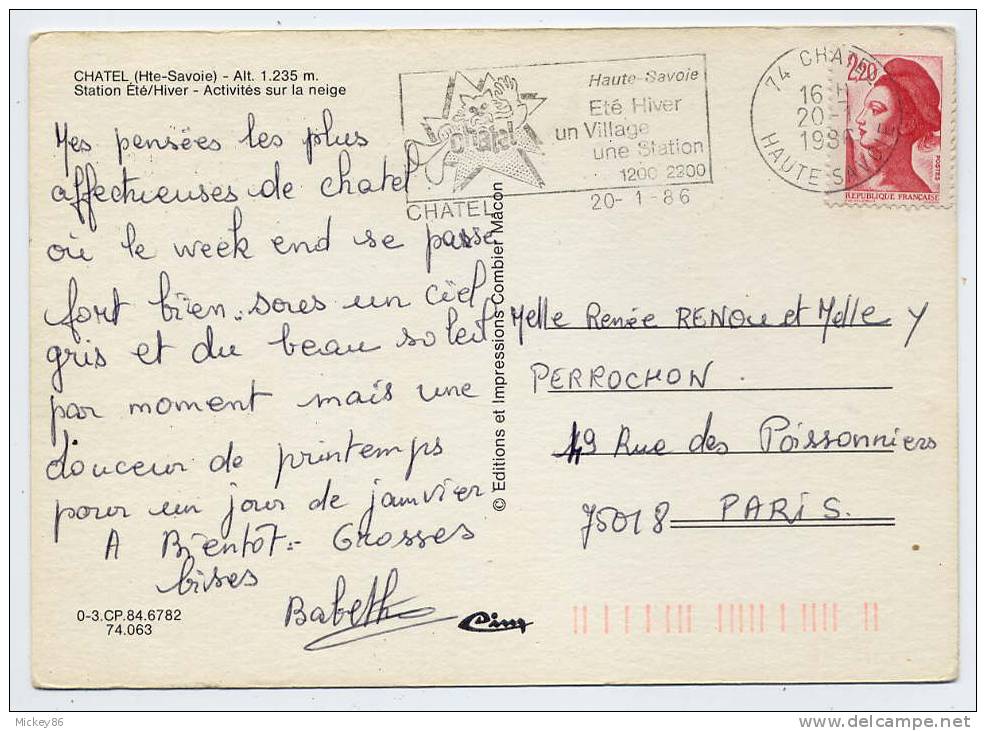 CHATEL (Hte-Savoie) - Alt. 1.235 m.
Station Été/Hiver - Activités sur la neige
Mes pensées les plus
affectueuses de chatel
où le week end se passe
fort bien. sous un ciel
gris et du beau soleil
par moment mais une
douceur de printemps
pour un jour de janvier
A Bientôt. Grosses
bises
Babeth
0-3.CP.84.6782
74.063
Cim
© Editions et Impressions Combier Mâcon
Châtel
CHATEL
Haute-Savoie
Eté Hiver
un Village
une Station
1200 2200
20-1-86
74 CHATEL
16 H
20-1
1986
HAUTE-SAVOIE
2,20
POSTES
REPUBLIQUE FRANÇAISE
Melle Renée RENOU et Melle Y
PERROCHON.
49 Rue des Poissonniers
75018 PARIS.
Mickey86
http://www.delcampe.net